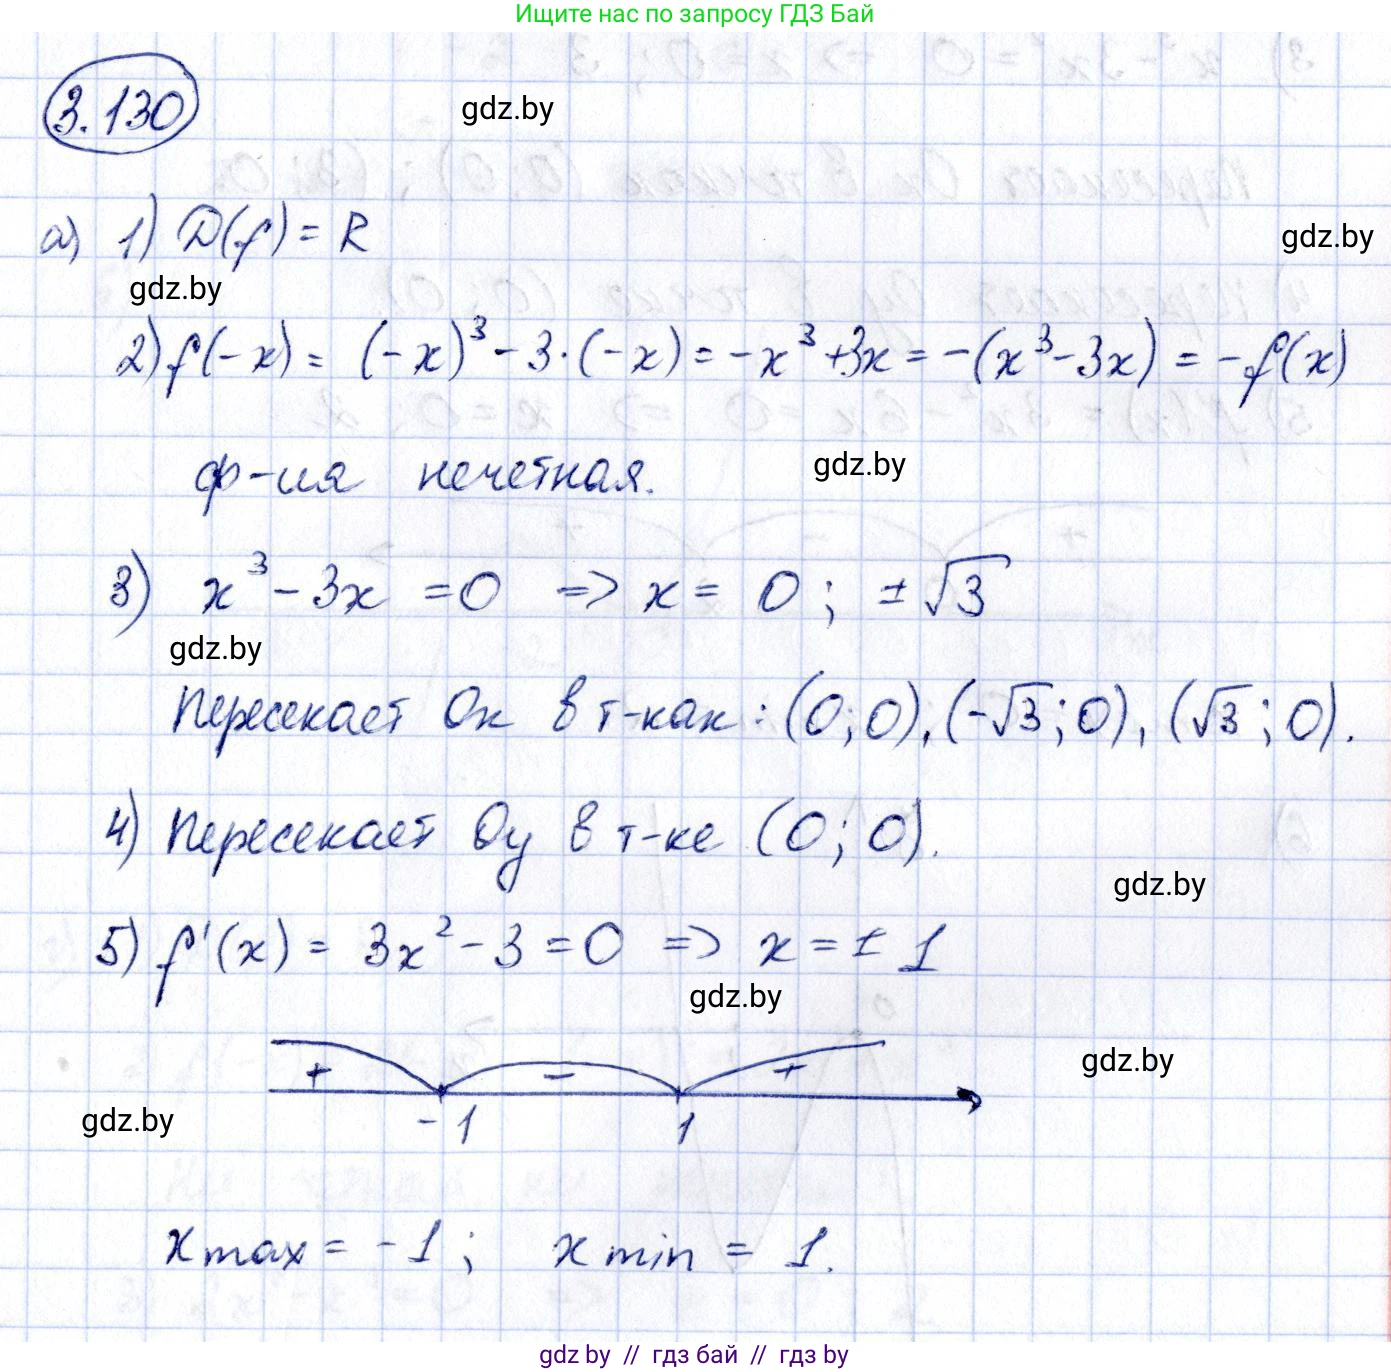 Ищите нас по запросу ГДЗ Бай
3.130
gdz.by
а) 1) D(f) = R
gdz.by
gdz.by
2) f(-x) = (-x)³ - 3·(-x) = -x³ + 3x = -(x³ - 3x) = -f(x)
ф-ия нечетная.
gdz.by
3) x³ - 3x = 0 => x = 0; ±√3
gdz.by
Пересекает Ox в т-ках: (0;0), (-√3;0), (√3;0).
4) Пересекает Oy в т-ке (0;0).
gdz.by
5) f'(x) = 3x² - 3 = 0 => x = ±1
gdz.by
+ - +
gdz.by
-1 1
gdz.by
x max = -1; x min = 1.
gdz by // гдз бай // gdz by